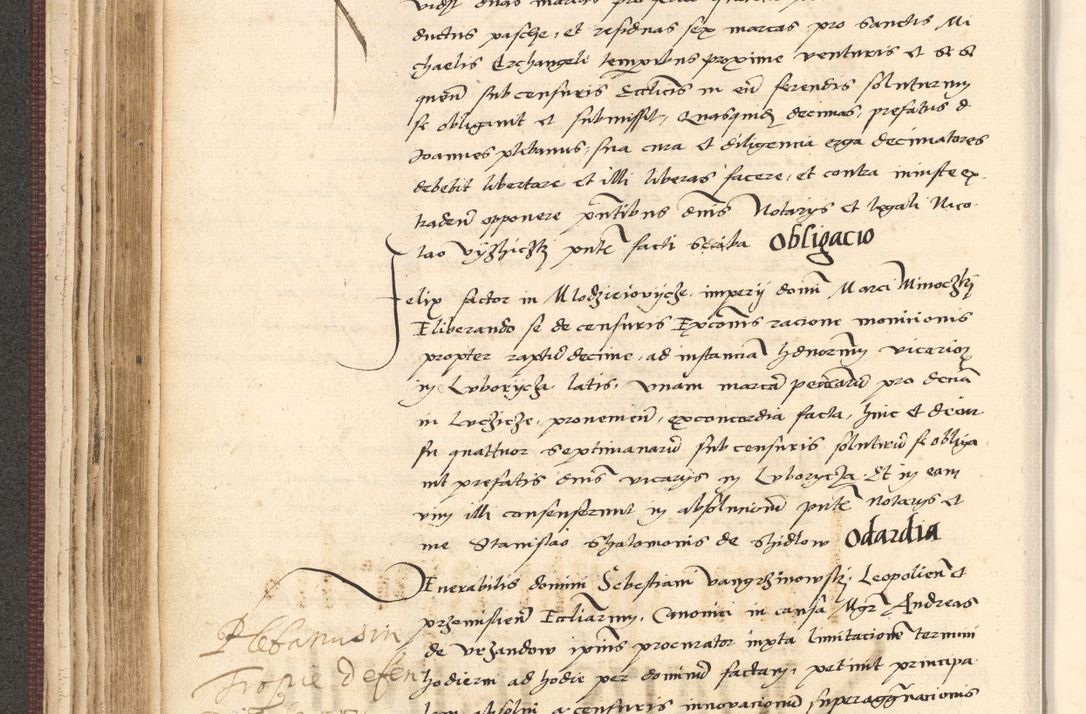 ductus pasche, et residuas sex marcas pro sanctis Mi
chaelis Archangeli temporibus proxime venturis et &c &c
quem sub censuris Ecclicis in eum ferendis soluturum
se obligavit et submisit, Quasquidem decimas, prefatus d
Joannes plebanus, sua cura et diligencia erga decimatores
debebit libertare et illi liberas facere, et contra iniuste ex
traden opponere pntibus dnis Notarys et legali Nico
lao pnte facti scriba Obligacio
Felix factor in Mlodzieiovycze, impery domi Marci Minoczky
Eliberando se de censuris Excois racione monicionis
propter raptum decime, ad instanciam honor vicariorum
in Luborzycza latis, unam marcam pecuniarum pro decima
in Luczicze, provenien, ex concordia facta, hinc et decur
su quattuor septimanarum sub censuris soluturum se obliga
vit prefatis dnis vicarys in Luborzycza Et in eam
vim illi consenserunt in absolucionem pnte Notarys et
me Stanislao Shalomonis de Shidlow Odardia
Venerabilis domini Sebestiani vangrzinowski, Leopolien et
przemislien Eccliarum, Canonici in causa Mgr Andreas
de Vrzandow ipius procurator iuxta limitacionem termini
hodierni ad hodie per dominum factam, petivit principa
lem absolvi a censuris innovacionum superaggravacionis
Plebanus in